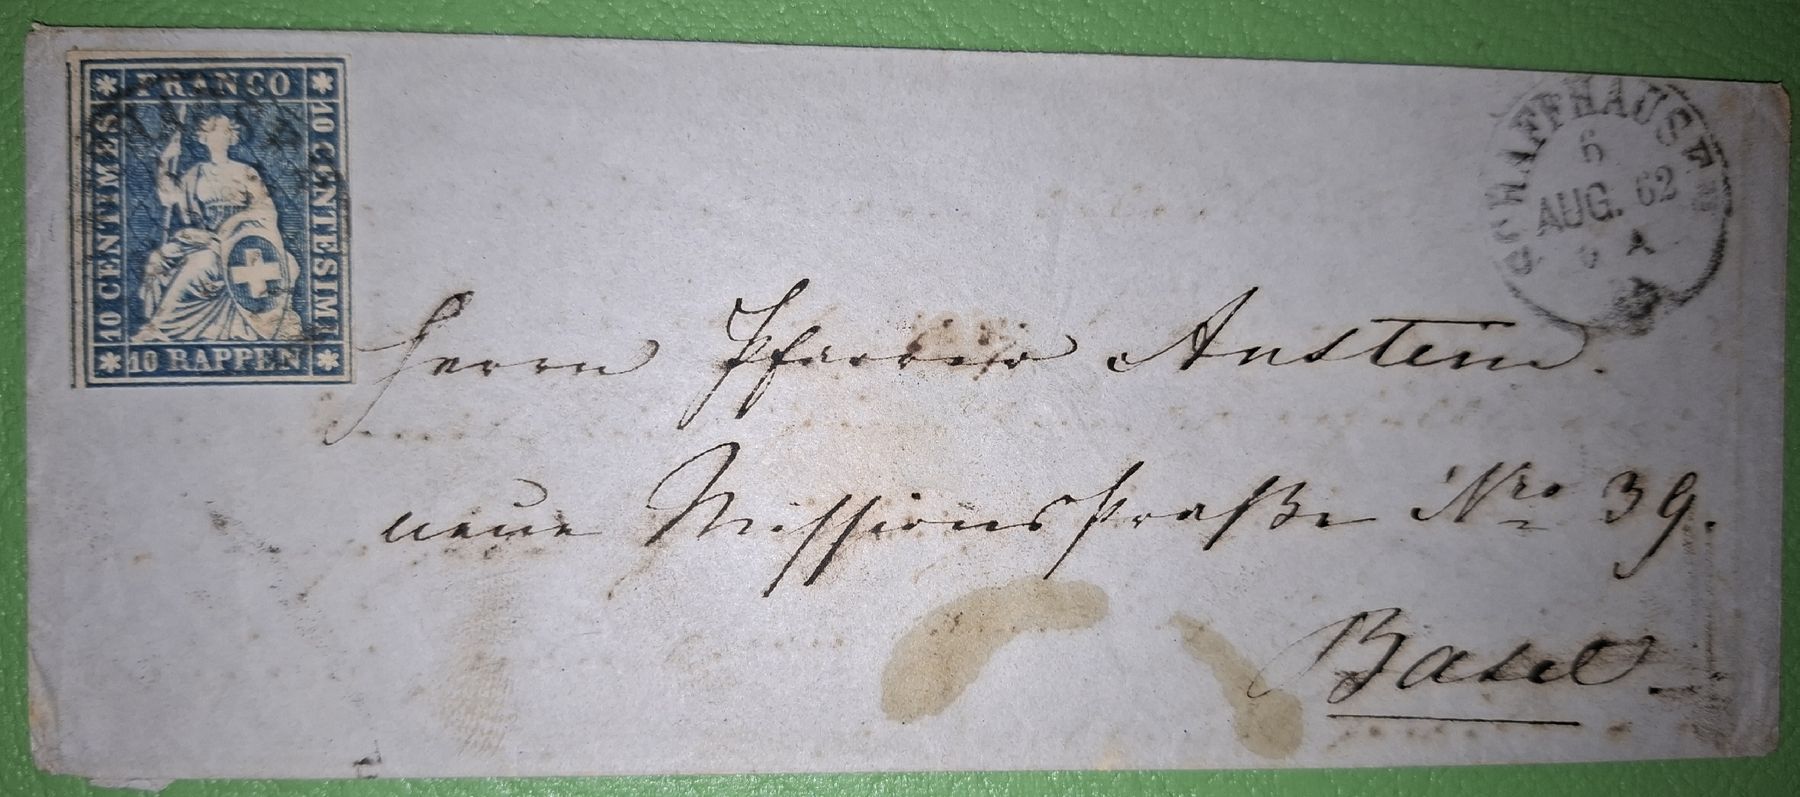 FRANCO
10 CENTIMES
10 CENTESIMI
10 RAPPEN
SCHAFFHAUSEN
6
AUG. 62
Herrn Pfarrer Anstein.
neue Missionsstraße Nro 39.
Basel.